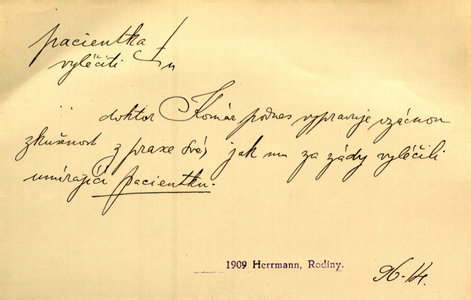 pacientka
vyléčiti
doktor Komár podnes vypravuje vzácnou
zkušenost z praxe své, jak mu za zády vyléčili
umírající pacientku.
1909 Herrmann, Rodiny.
96.